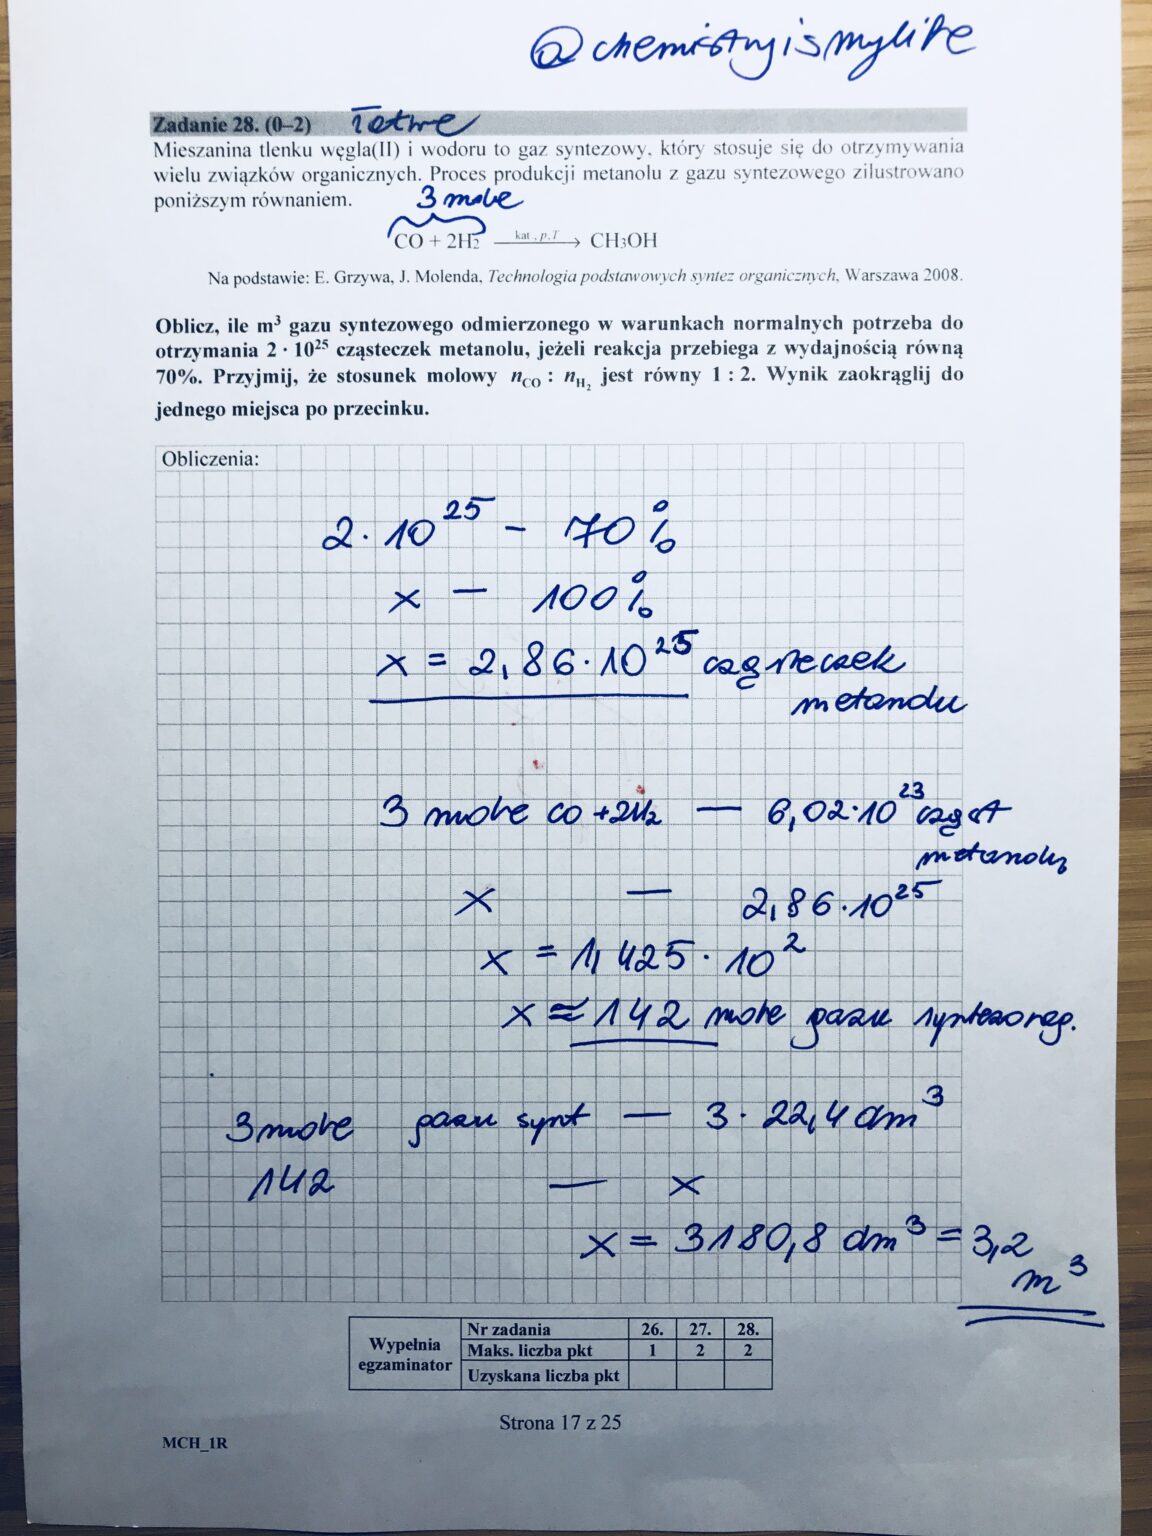 @chemistryismylife
Zadanie 28. (0–2) Łatwe
Mieszanina tlenku węgla(II) i wodoru to gaz syntezowy, który stosuje się do otrzymywania
wielu związków organicznych. Proces produkcji metanolu z gazu syntezowego zilustrowano
poniższym równaniem.
3 mole
CO + 2H2 kat., p, T → CH3OH
Na podstawie: E. Grzywa, J. Molenda, Technologia podstawowych syntez organicznych, Warszawa 2008.
Oblicz, ile m³ gazu syntezowego odmierzonego w warunkach normalnych potrzeba do
otrzymania 2 · 10²⁵ cząsteczek metanolu, jeżeli reakcja przebiega z wydajnością równą
70%. Przyjmij, że stosunek molowy nCO : nH₂ jest równy 1 : 2. Wynik zaokrąglij do
jednego miejsca po przecinku.
Obliczenia:
2·10²⁵ – 70%
x – 100%
x = 2,86·10²⁵ cząsteczek
metanolu
3 mole CO + 2H2 — 6,02·10²³ cząst
metanolu
x — 2,86·10²⁵
x = 1,425·10²
x ≈ 142 mole gazu syntezoweg.
3 mole gazu synt — 3·22,4 dm³
142 — x
x = 3180,8 dm³ = 3,2
m³
Wypełnia egzaminator
Nr zadania 26. 27. 28.
Maks. liczba pkt 1 2 2
Uzyskana liczba pkt
Strona 17 z 25
MCH_1R